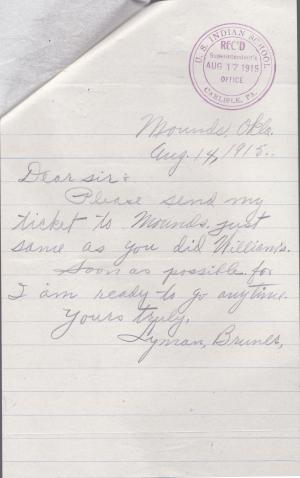 U. S. INDIAN SCHOOL
REC'D
Superintendent's
AUG 17 1915
OFFICE
CARLISLE, PA.
Mounds, Okla.
Aug. 14, 1915.
Dear sir:
Please send my
ticket to Mounds. just
same as you did William's.
Soon as possible. for
I am ready to go anytime.
Yours truly,
Lyman, Bruner,